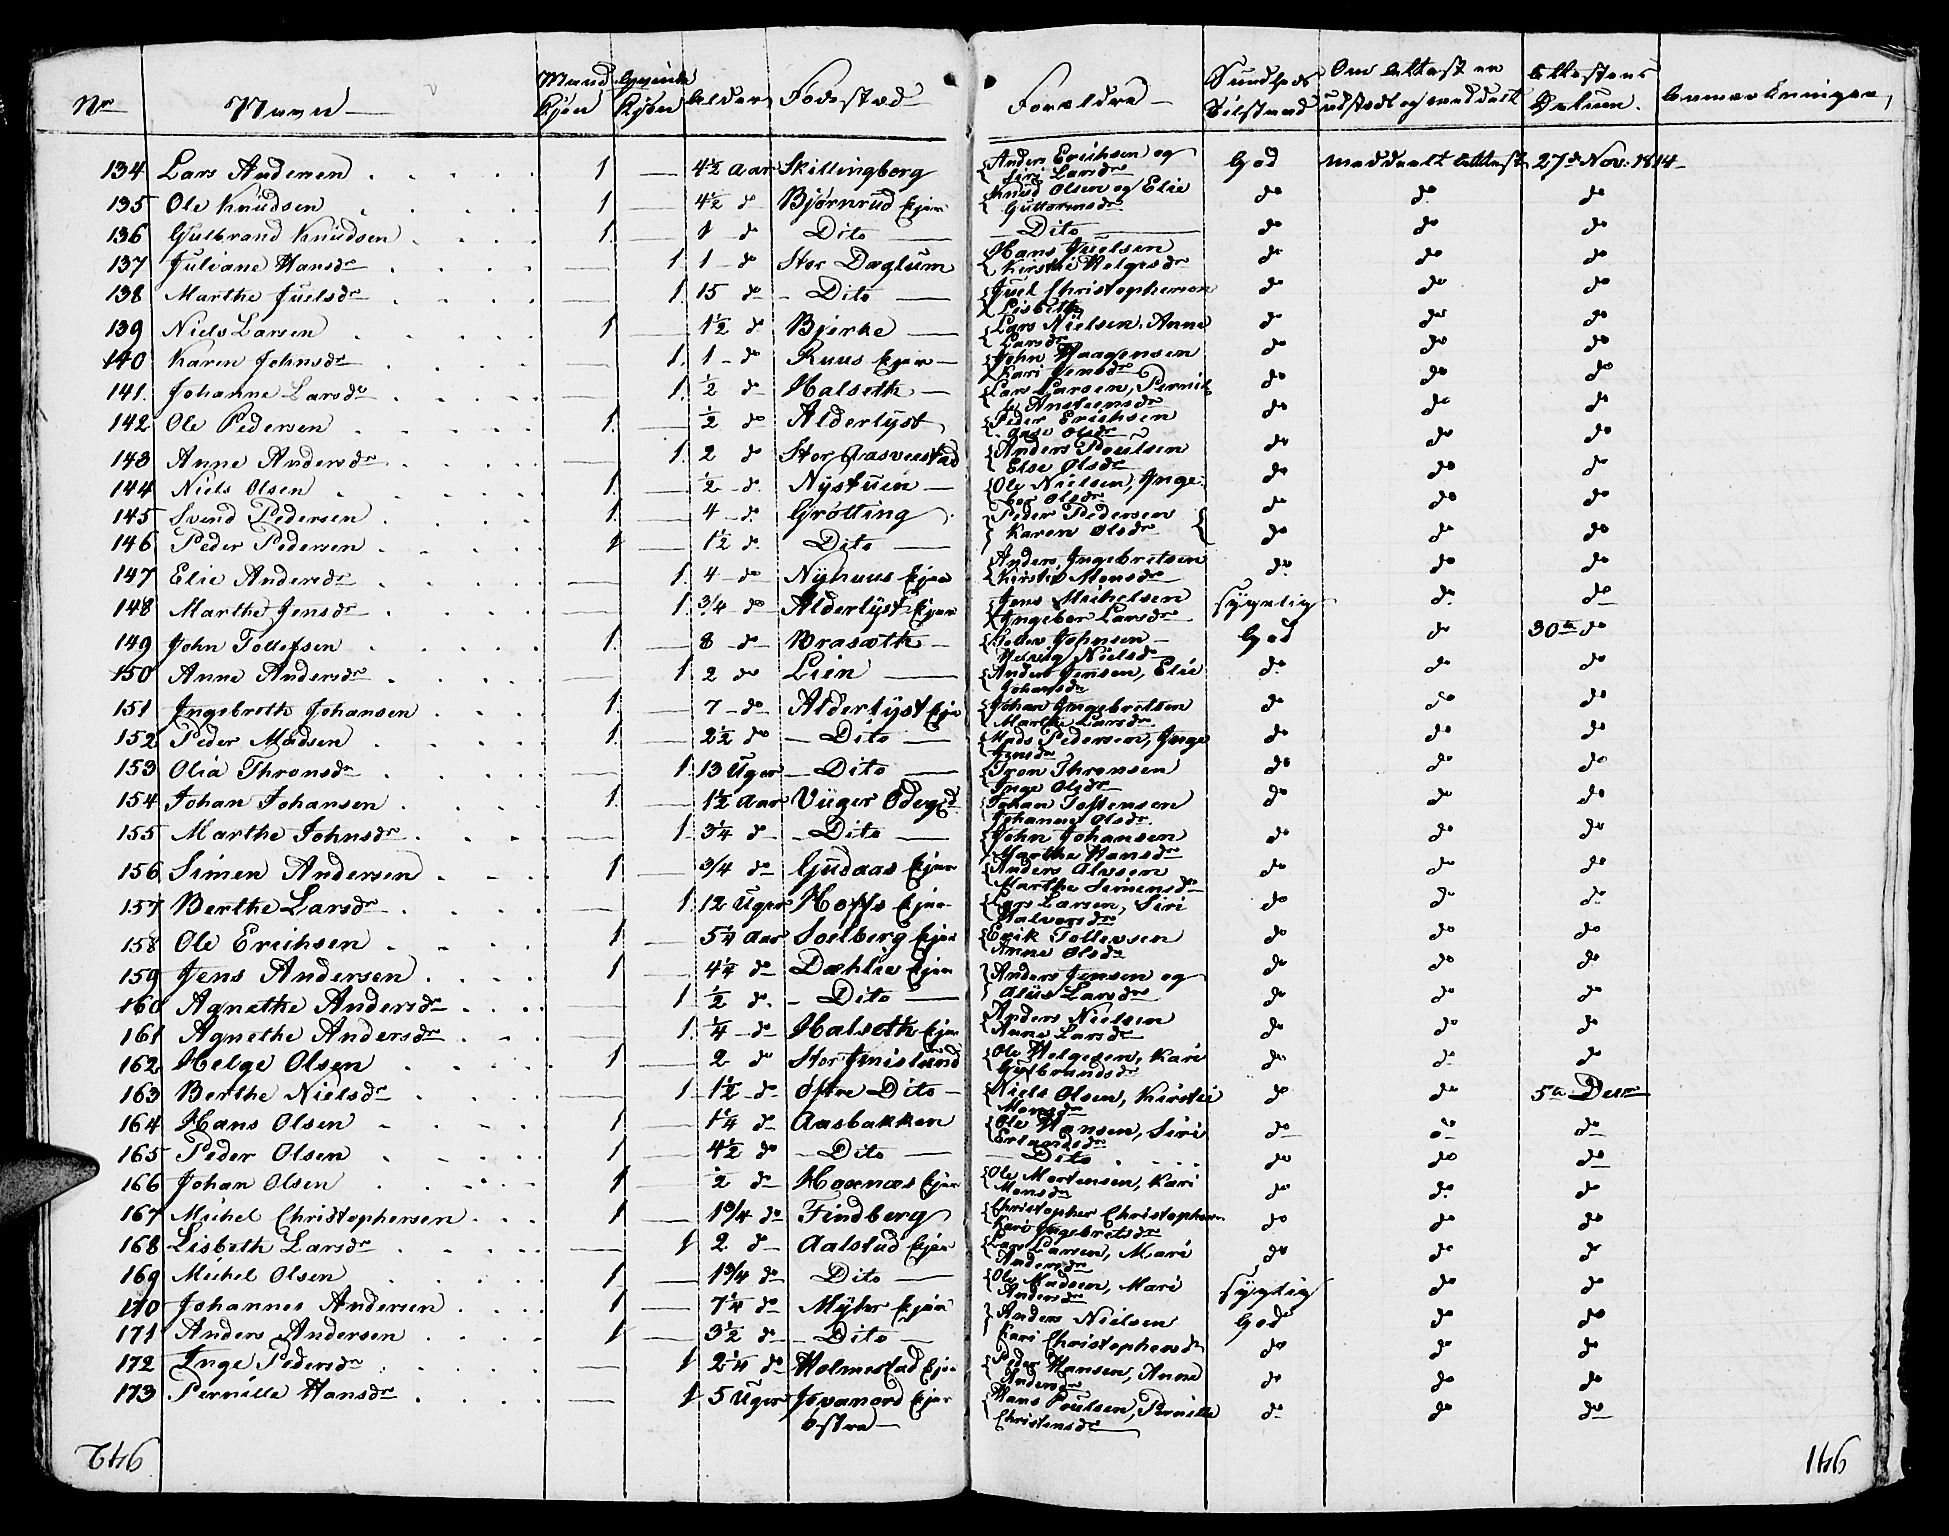 Nr Navn Mand Kjøn Qvinde Kjøn Alder Fødested Forældre Sundheds Tilstand Om Attest er udstædt og meddeelt Attestens Datum. Anmærkninger
134 Lars Andersen 1 — 4½ Aar Skillingberg Anders Erichsen og Siri Larsdr God meddeelt Attest 27de Nov: 1814
135 Ole Knudsen 1 — 4½ do Bjørnrud Ejer Knud Olsen og Elie Guttormsdr do do do
136 Gulbrand Knudsen 1 — 1 do Dito Dito do do do
137 Juliane Hansdr — 1 1 do Stor Daglum Hans Juelsen Kirsthi Helgesdr do do do
138 Marthe Juelsdr — 1 15 do Dito Juel Christophersen Lisbeth do do do
139 Niels Larsen 1 — 1½ do Bjerke Lars Nielsen, Anne Larsdr do do do
140 Karen Johnsdr — 1 1 do Ruus Ejer John Haagensen Kari Jensdr do do do
141 Johanne Larsdr — 1 ½ do Halseth Lars Larsen, do do do
142 Ole Pedersen 1 — ½ do Alderlyst Peder Erichsen Aase Olsdr do do do
143 Anne Andersdr — 1 2 do Stor Anders Poulsen Else Olsdr do do do
144 Niels Olsen 1 — ½ do Nÿstuen Ole Nielsen, Inge bor Olsdr do do do
145 Svend Pedersen 1 — 4 do Grøtting Peder Pedersen do do do
146 Peder Pedersen 1 — 1½ do Dito Karen Olsdr do do do
147 Elie Andersdr — 1 4 do Nÿhuus Ejer Anders Ingebretsen Kirsten Monsdr do do do
148 Marthe Jensdr — 1 3/4 do Alderlyst Ejer Jens Michelsen Ingebor Larsdr sygelig do do
149 John Tollefsen 1 — 8 do Braseth Johnsen Helvig Nielsdr God do 30te do
150 Anne Andersdr — 1 2 do Lien Anders Jensen, Elie Johansdr do do do
151 Ingebreth Johansen 1 — 7 do Alderlyst Ejer Johan Ingebretsen Marthe Larsdr do do do
152 Peder Madsen 1 — 2½ do Dito Mads Pedersen, Inge Jensdr do do do
153 Olia Thronsdr — 1 13 Uger Dito Tron Thronsen Inge Olsdr do do do
154 Johan Johansen 1 — 1½ Aar Johan Toftensen Johanne Olsdr do do do
155 Marthe Johnsdr — 1 3/4 do Dito John Johansen Marthe Hansdr do do do
156 Simen Andersen 1 3/4 do Gudaas Ejer Anders Alvsen Marthe Simensdr do do do
157 Berthe Larsdr — 1 12 Uger Hoffs Ejer Lars Larsen, Siri Halvorsdr do do do
158 Ole Erichsen 1 — 5¼ Aar Soelberg Ejer Erik Tollevsen Anne Olsdr do do do
159 Jens Andersen 1 — 4¼ do Dæhlie Ejer Anders Jensen og do do do
160 Agnethe Andersdr — 1 ½ do Dito Larsdr do do do
161 Agnethe Andersdr — 1 ¼ do Halseth Ejer Anders Nielsen Anne Larsdr do do do
162 Helge Olsen 1 — 2 do Stor Imislund Ole Helgesen, Kari Gulbrandsdr do do do
163 Berthe Nielsdr — 1 1½ do Østre Dito Niels Olsen, Kirstie Monsdr do do 5te Decr
164 Hans Olsen 1 — 1¼ do Aasbakken Ole Hansen, Siri Erlandsdr do do do
165 Peder Olsen 1 — 4½ do Dito Dito do do do
166 Johan Olsen 1 — ½ do Hoxnæs Ejer Ole Mortensen, Kari Monsdr do do do
167 Michel Christophersen 1 — 1 3/4 do Findberg Christopher Christophersen Kari Ingebretsdr do do do
168 Lisbeth Larsdr — 1 2 do Aalstad Ejer Lars Larsen, Mari Andersdr do do do
169 Michel Olsen 1 — 1 3/4 do Dito Ole Madsen, Mari Andersdr sygelig do do
170 Johannes Andersen 1 — 7¼ do Myhr Ejer Anders Nielsen God do do
171 Anders Andersen 1 — 3½ do Dito Kari Christophersdr do do do
172 Inge Pedersdr — 1 2¼ do Holmestad Ejer Peder Hansen, Anne Andersdr do do do
173 Pernille Hansdr — 1 5 Uger Ejer Østre Hans Poulsen, Pernille Christensdr do do do
146